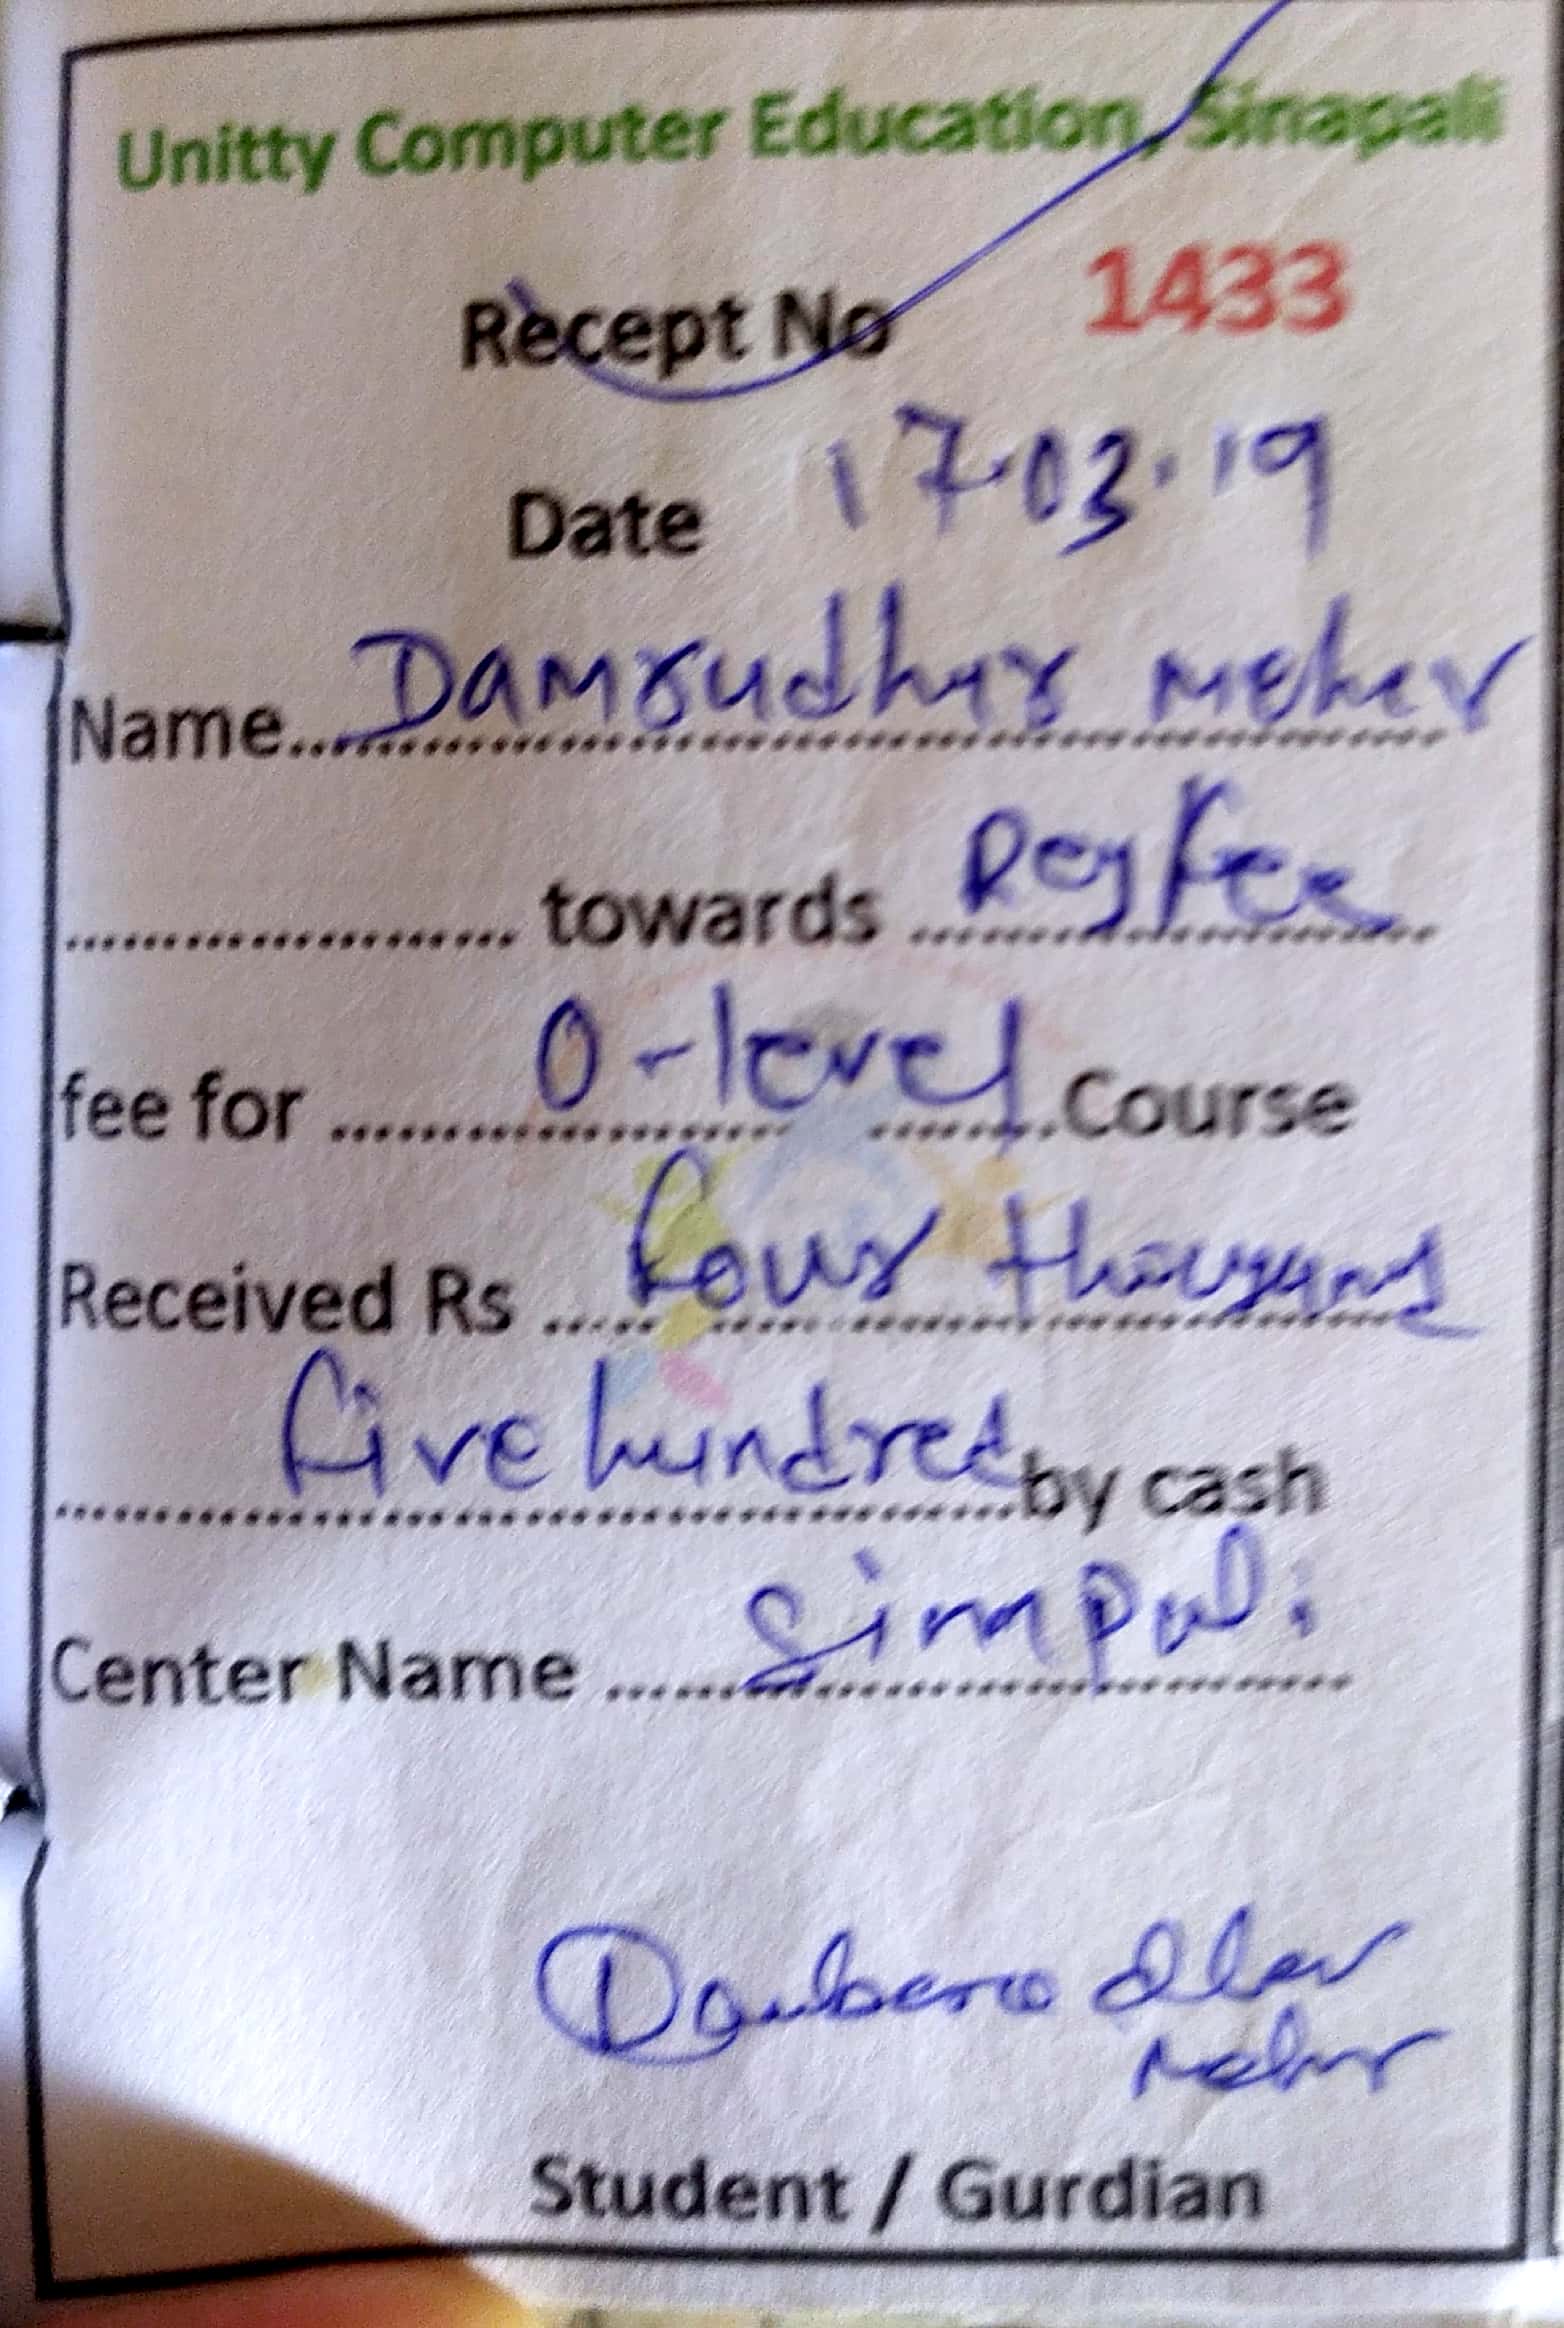 Unitty Computer Education, Sinapali
Recept No 1433
Date 17.03.19
Name.....Damrudhar Meher
..................... towards Reg Fee
fee for ..... O-level .....Course
Received Rs ..... Four thousand
Five hundred by cash
Center Name ..... Sinapali
Meher
Student / Gurdian